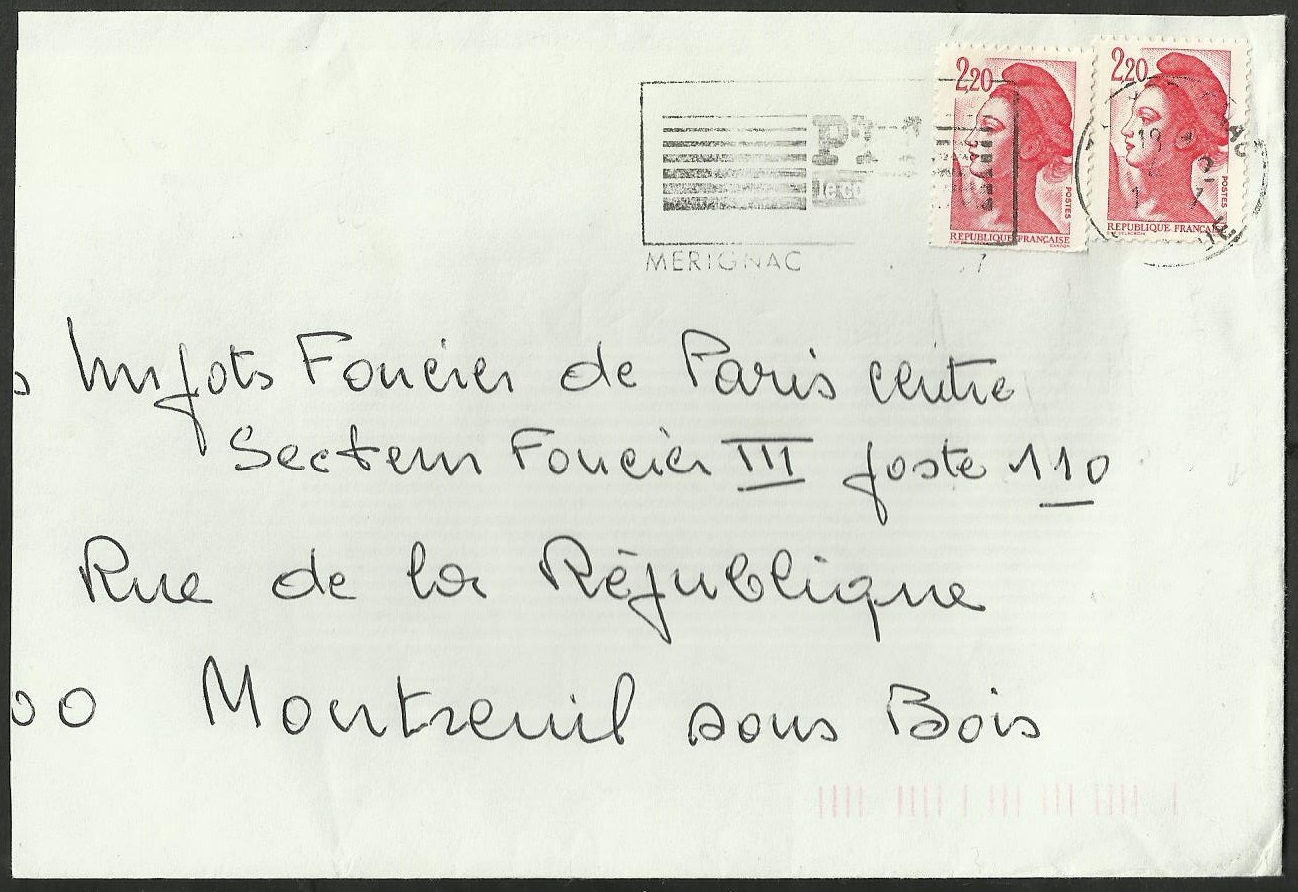 2,20
2,20
POSTES
POSTES
REPUBLIQUE FRANÇAISE
REPUBLIQUE FRANÇAISE
MERIGNAC
s Impots Foncier de Paris centre
Secteur Foncier III poste 110
Rue de la République
00 Montreuil sous Bois